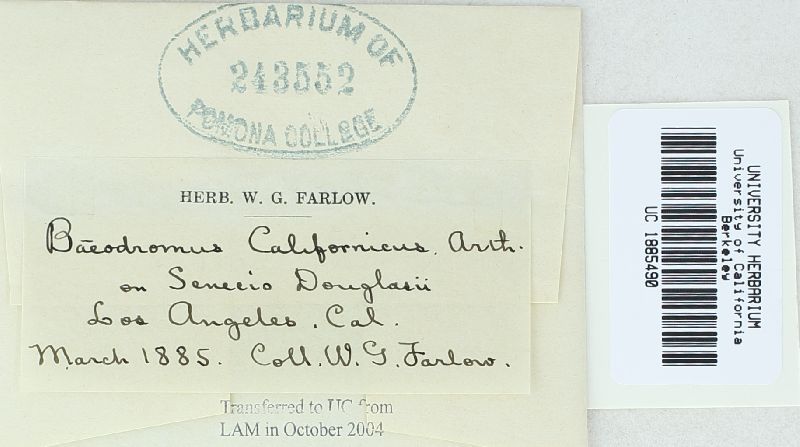 HERBARIUM OF
243552
POMONA COLLEGE
HERB. W. G. FARLOW.
Baeodromus Californicus, Arth.
on Senecio Douglasii
Los Angeles, Cal.
March 1885. Coll. W. G. Farlow.
Transferred to UC from
LAM in October 2004
UNIVERSITY HERBARIUM
University of California
Berkeley
UC 1885490